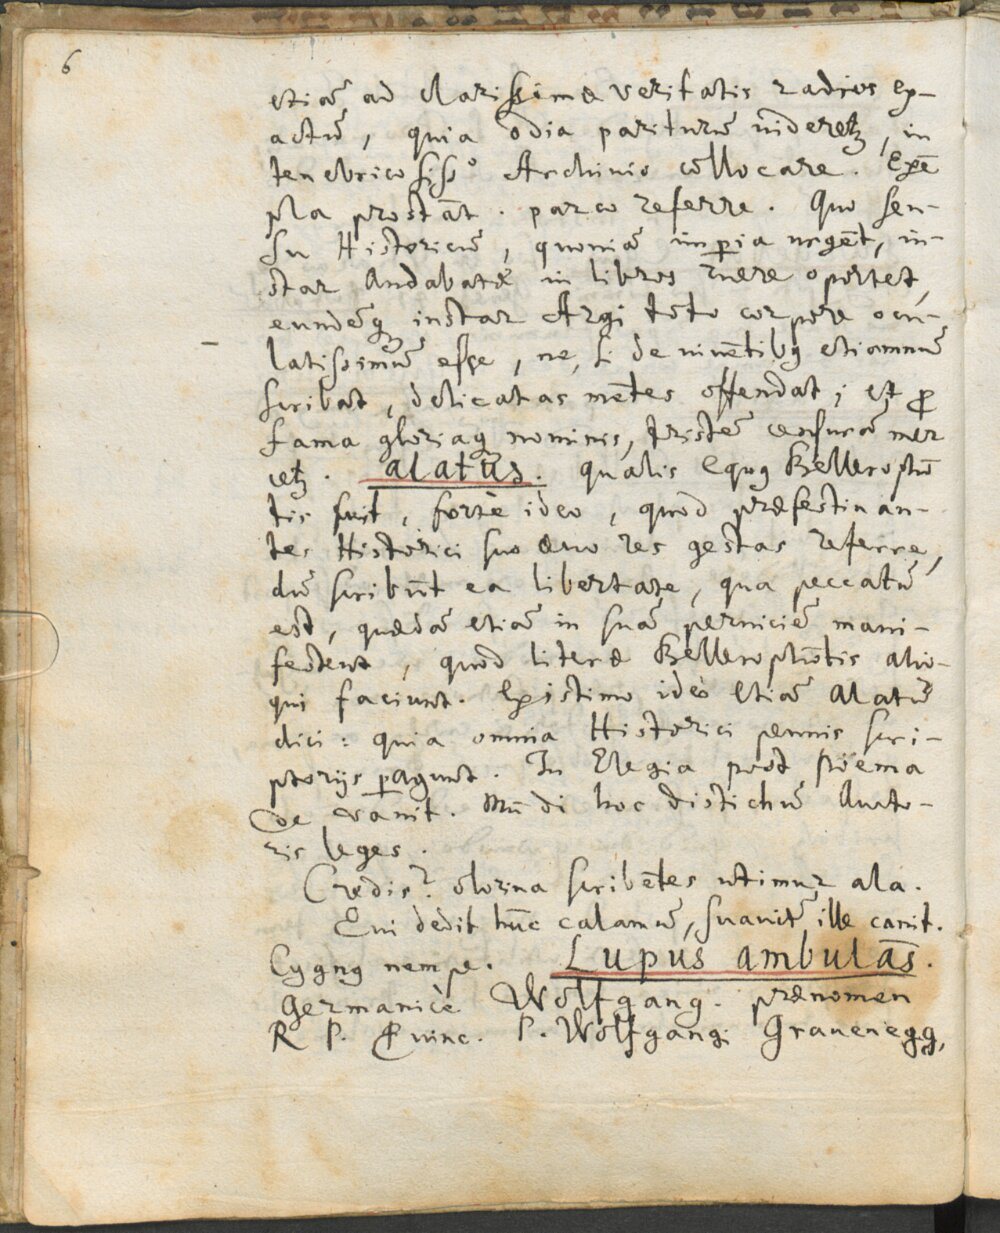 6
etiā ad clarissimæ veritatis radios ex-
actū, quia odia pariturū videretʒ, in
tenebricosissº Archivio collocare. Exē
pla prostāt. parco referre. Quo sen-
su Historicū, quoniā imperia urgēt, in-
star Andabatæ in libros ruere oportet,
eundēqʒ instar Argi toto corpore ocu-
latissimū esse, ne, si de viuētibʒ etiamnū
scribat, delicatas mētes offendat; et pro
fama gloriaqʒ nominis, tristē censurā mer
cetʒ. alatus. qualis equʒ Bellerophō
tis fuit, fortè ideo, quod præfestinan-
tes Historici suo æuo res gestas referre,
dū scribūt ea libertate, qua peccatū
est, quædā etiā in suā perniciē mani-
festent, quod literæ Bellerophōtis alio-
qui faciunt. Existimo ideò etiā alatū
dici: quia omnia Historici pennis scri-
ptorijs peragunt. In Elegia post Poëma
de vanit. Mūdi hoc distichū Aucto-
ris leges.
Credis? olorina scribētes utimur ala.
Qui dedit hūc calamū, suauitʳ ille canit.
Cygnʒ nempe. Lupus ambulās.
Germanicè Wolfgang. prænomen
R P. Quinc. P. Wolfgangi Grauenegg,